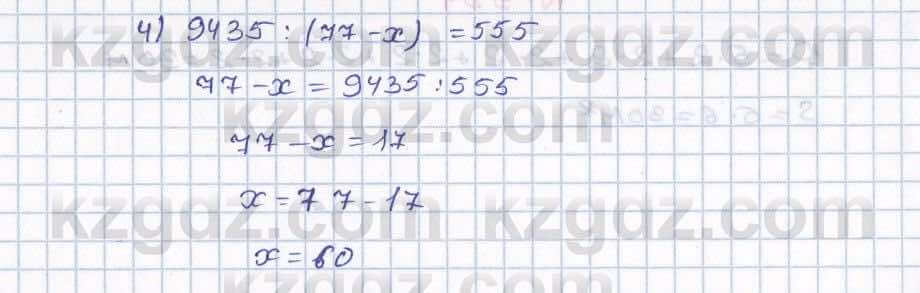 4) 9435 : (77-x) = 555
77-x = 9435:555
77-x=17
x=77-17
x=60
kzgdz.com kzgdz.com
kzgdz.com kzgdz.com
kzgdz.com kzgdz.com